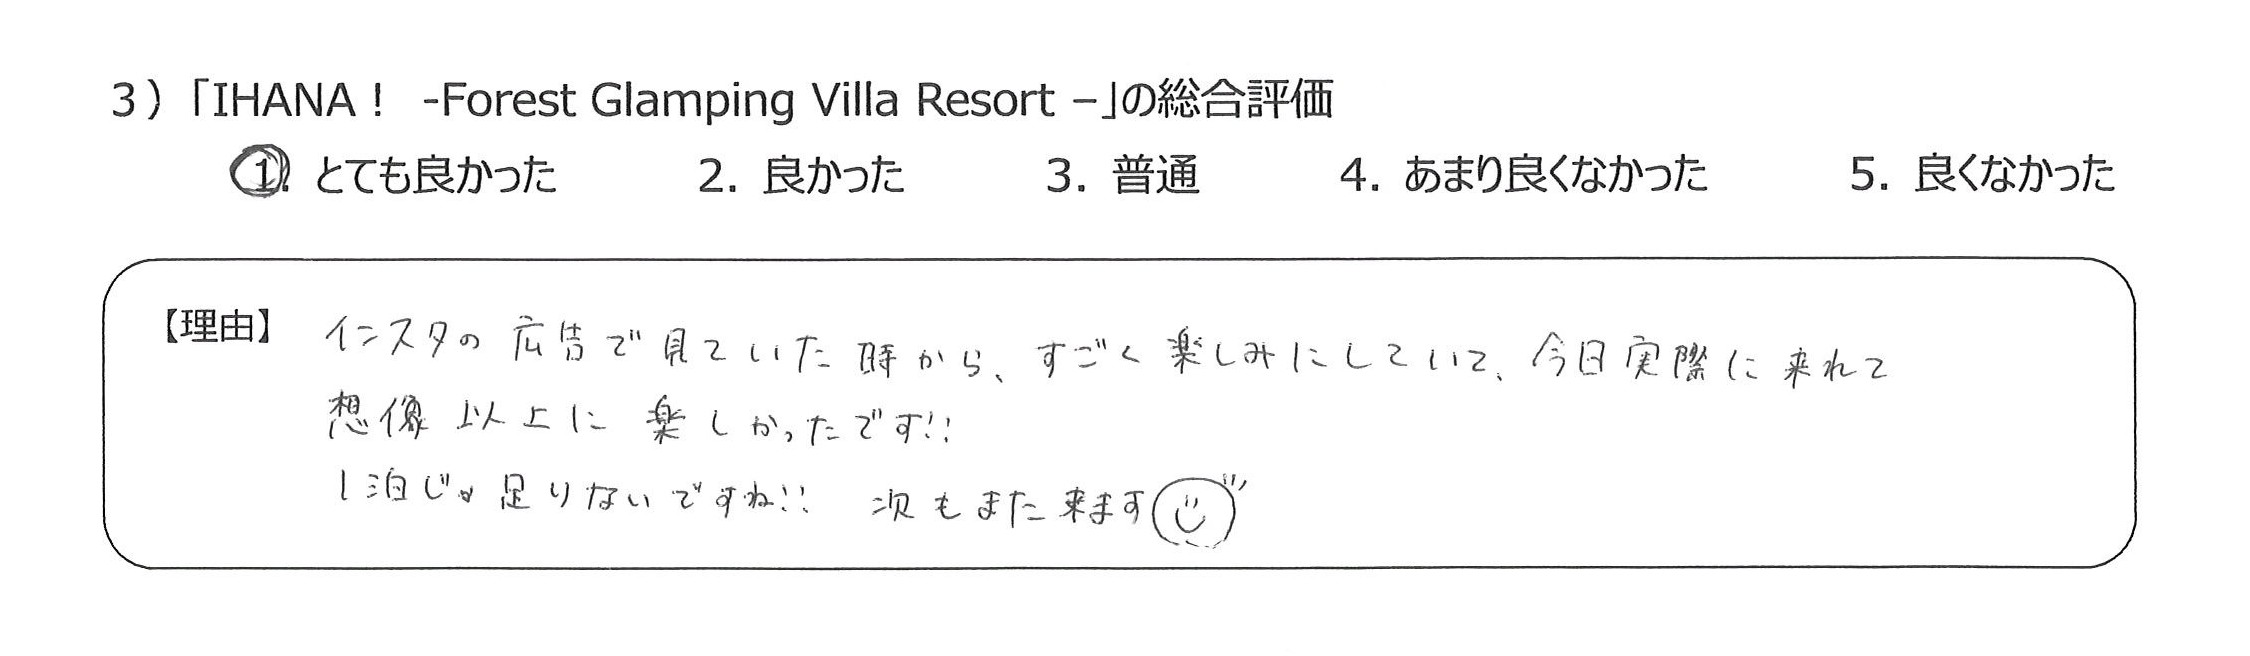 3）「IHANA！ -Forest Glamping Villa Resort －」の総合評価
1. とても良かった 2. 良かった 3. 普通 4. あまり良くなかった 5. 良くなかった
【理由】 インスタの広告で見ていた時から、すごく楽しみにしていて、今日実際に来れて
想像以上に楽しかったです!!
1泊じゃ足りないですね!! 次もまた来ます